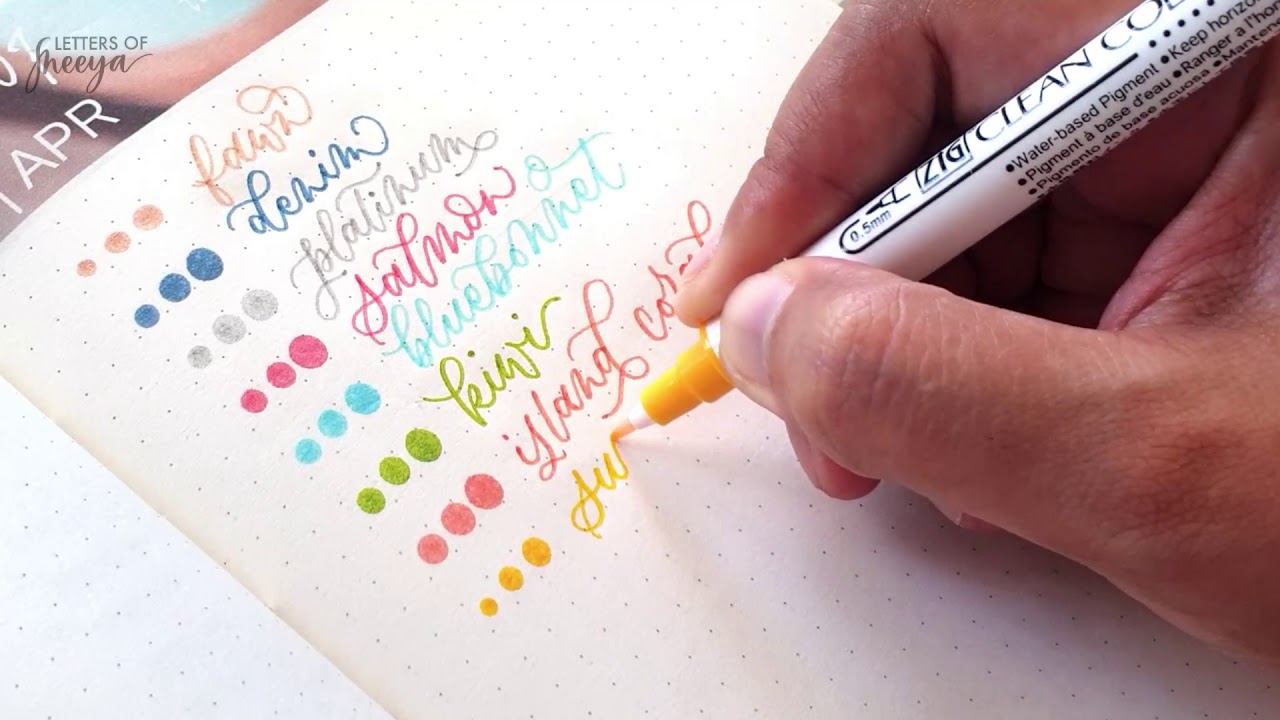 LETTERS OF
Sheeya
1 APR
fawn
denim
platinum
salmon
bluebonnet
kiwi
island coral
su
0.5mm
ZIG CLEAN COL
•Water-based Pigment •Keep horizo
•Pigment à base d'eau •Ranger a l'ho
•Pigmento de base acuosa •Mantene